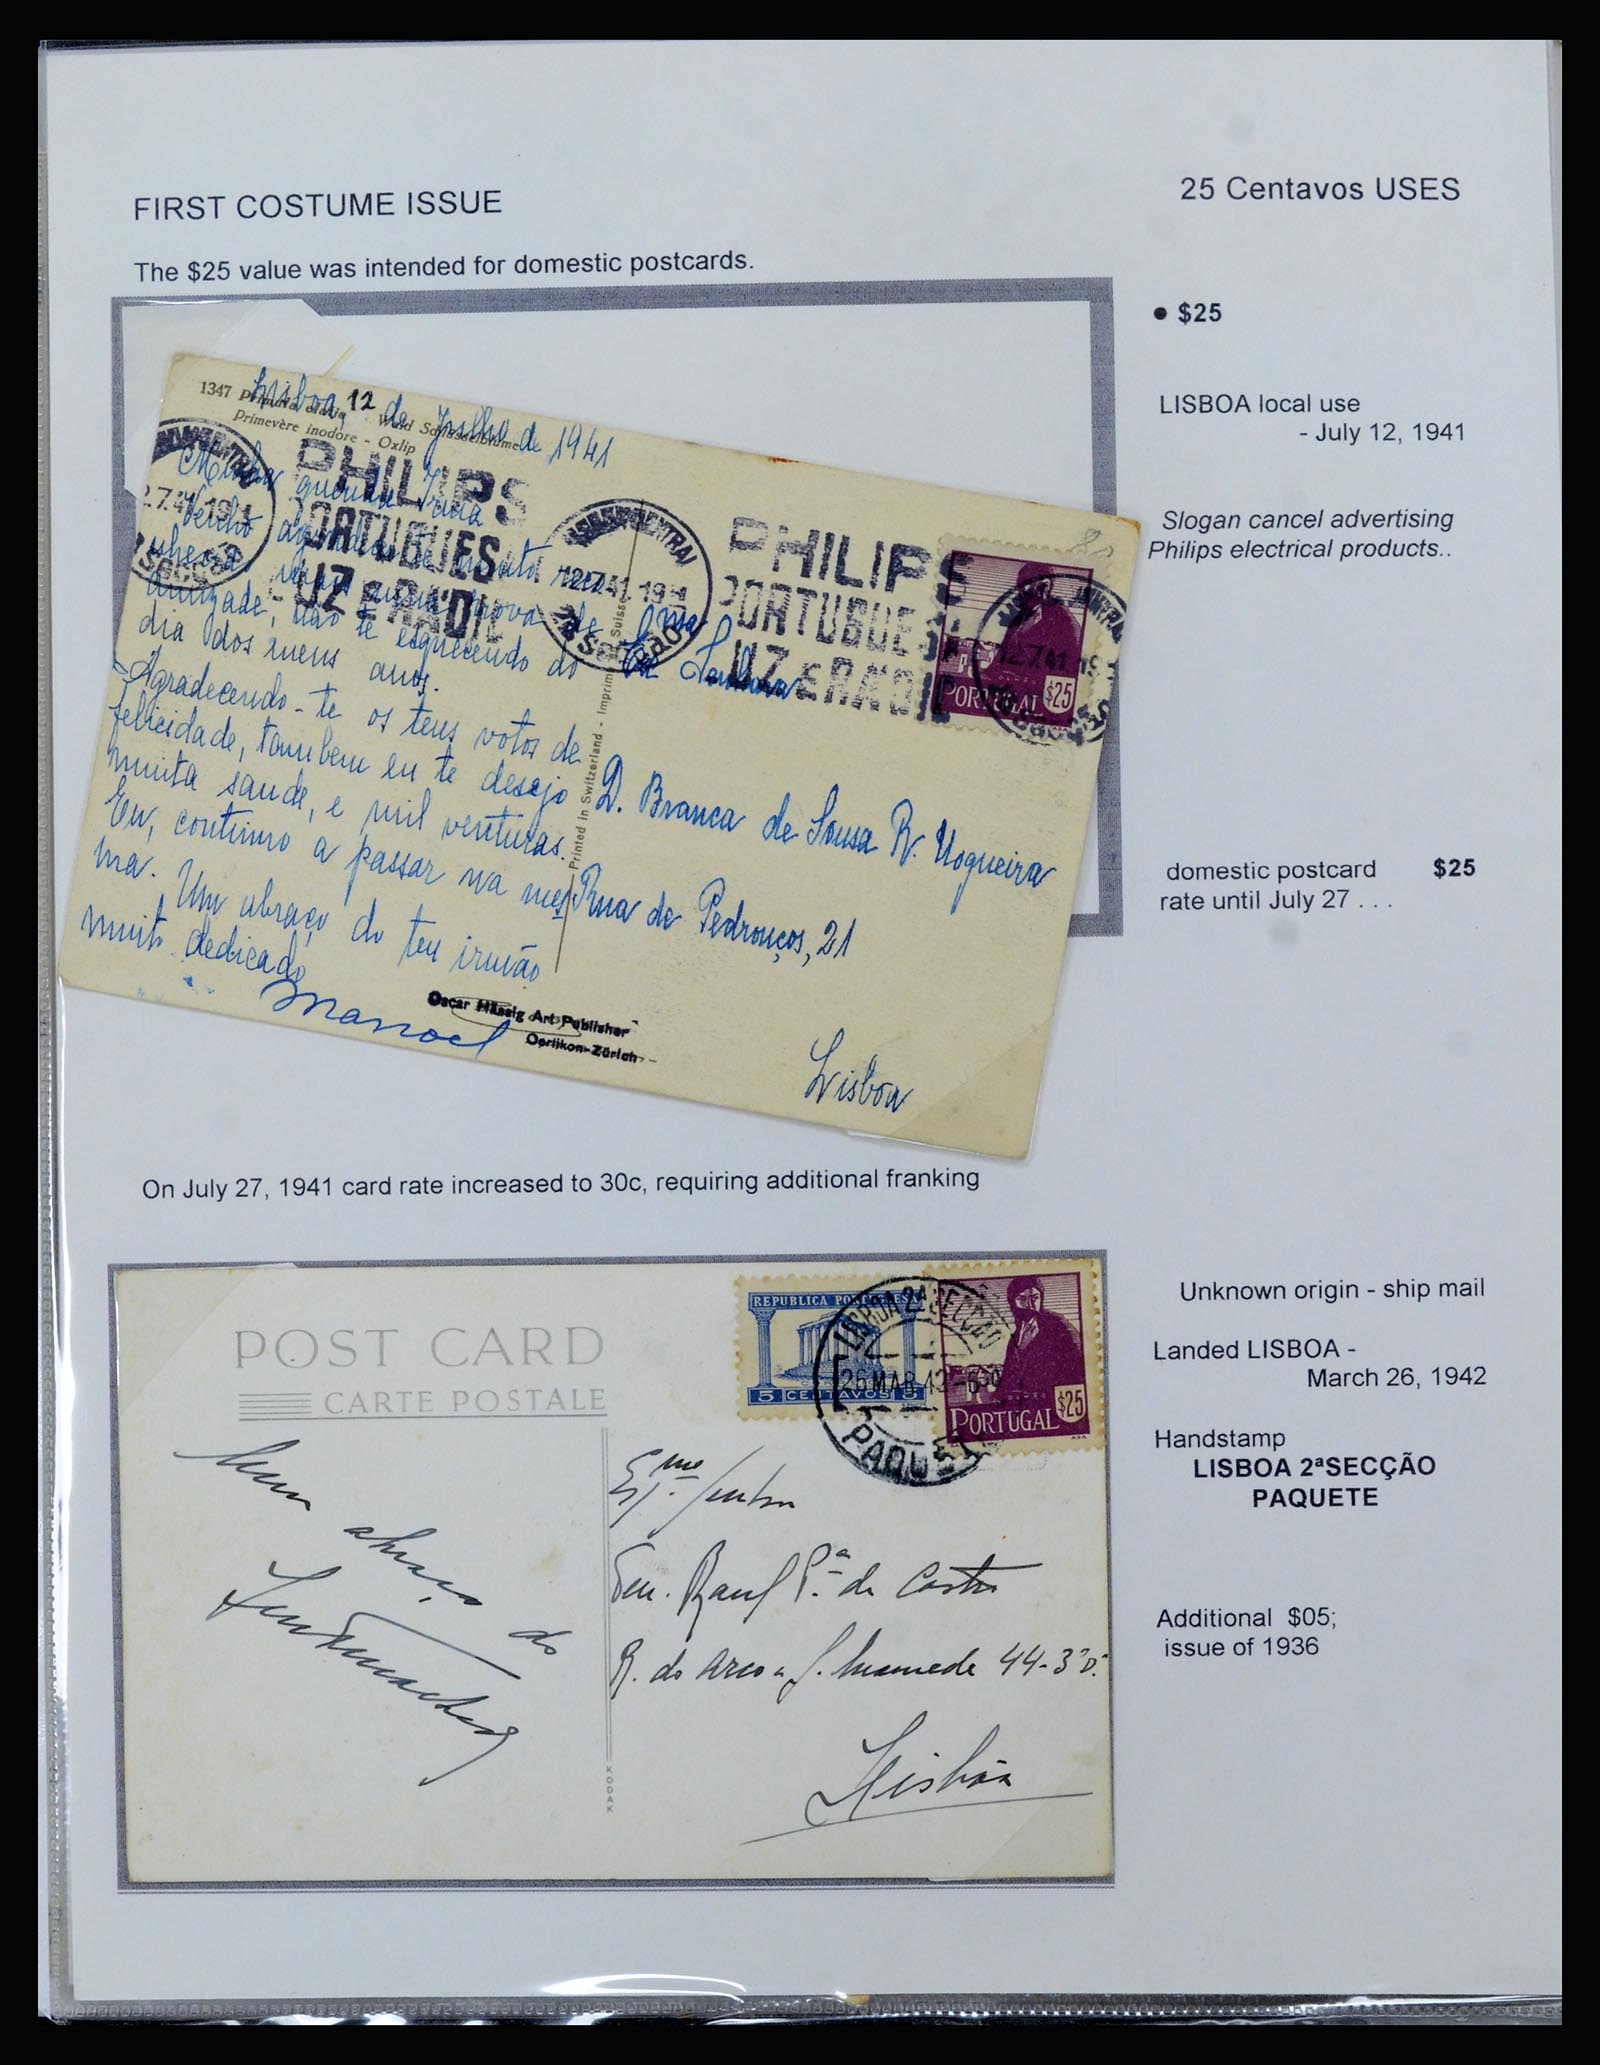 FIRST COSTUME ISSUE
25 Centavos USES
The $25 value was intended for domestic postcards.
• $25
LISBOA local use
- July 12, 1941
Slogan cancel advertising
Philips electrical products..
domestic postcard $25
rate until July 27 . . .
1347 Wald Schlüsselblume
Primevère inodore - Oxlip
Lisboa, 12 de Julho de 1941
Minha querida Irmã
Venho agradecer-te muito
mais uma prova de
amizade, não te esquecendo do
dia dos meus anos.
Agradecendo-te os teus votos de
felicidade, tambem eu te desejo
muita saude, e mil venturas.
Eu, continuo a passar na mes
ma. Um abraço do teu irmão
muito dedicado
Manoel
PHILIPS
PORTUGUESA
LUZ e RADIO
12.7.41.19
PHILIPS
PORTUGUESA
LUZ e RADIO
12.7.41
PORTUGAL $25
Printed in Switzerland - Imprimé en Suisse
D. Branca de Sousa R. Nogueira
Rua de Pedrouços, 21
Lisboa
Oscar Hässig Art Publisher
Oerlikon-Zürich
On July 27, 1941 card rate increased to 30c, requiring additional franking
POST CARD
CARTE POSTALE
REPUBLICA PORTUGUESA
5 CENTAVOS 5
LISBOA 2ª SECÇÃO
26 MAR 42
PAQUETE
PORTUGAL $25
Um abraço do
Exma Senhora
Raul Pa de Castro
R. do Arco a S. Mamede 44-3º D.
Lisbôa
KODAK
Unknown origin - ship mail
Landed LISBOA -
March 26, 1942
Handstamp
LISBOA 2ªSECÇÃO
PAQUETE
Additional $05;
issue of 1936